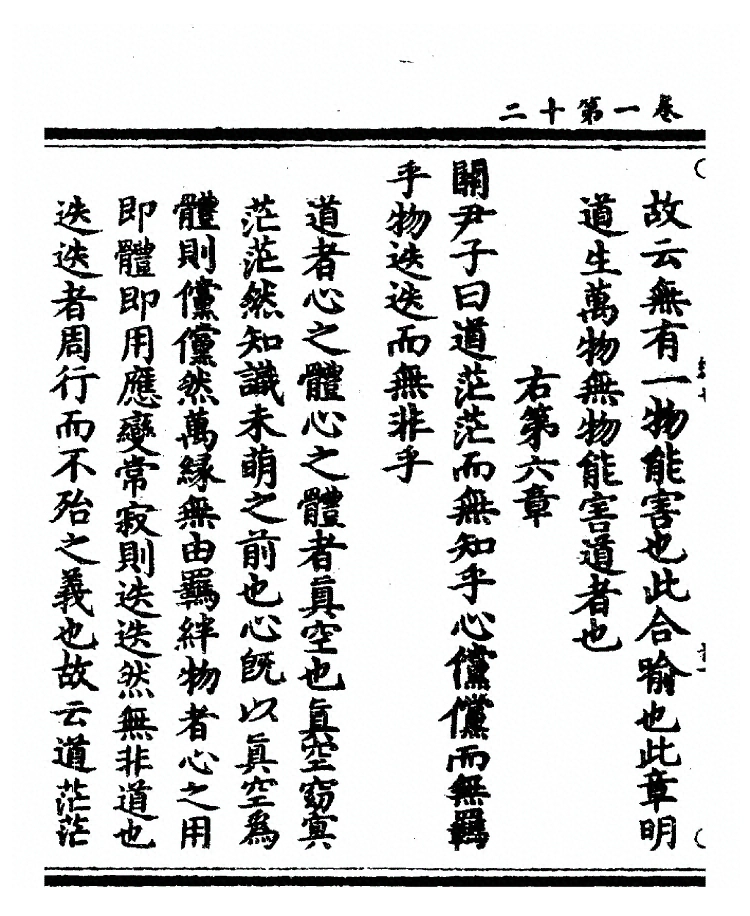 卷一第十二
故云無有一物能害也此合喻也此章明
道生萬物無物能害道者也
右第六章
關尹子曰道茫茫而無知乎心儻儻而無羈
乎物迭迭而無非乎
道者心之體心之體者真空也真空窈冥
茫茫然知識未萌之前也心既以真空為
體則儻儻然萬緣無由羈絆物者心之用
即體即用應變常寂則迭迭然無非道也
迭迭者周行而不殆之義也故云道茫茫